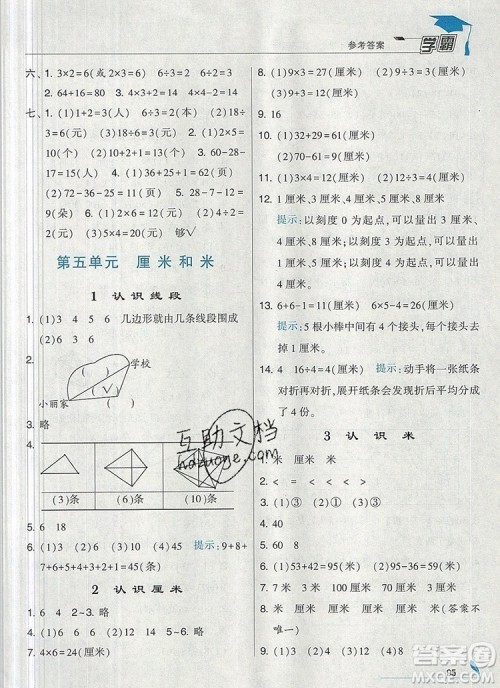 参考答案 学霸
六、1. 3×2=6(或2×3=6) 6÷3=2 6÷2=3
2. 64+16=80 3. 2×4=8 4. 28÷2=14
七、1. (1)1+2=3(人) (2)6÷3=2(枝) (2)18÷
3=6(元) (3)18÷6=3(元) 2. (1)2×5=
10(个) (2)10+2+1=13(个) 3. 60-28-
17=15(本) 4. (1)36-2-18=16(页)
(2)72-36-25=11(页) 5. 28-7-12=
9(朵) 6. (1)2×9=18(元) (2)够
第五单元 厘米和米
1 认识线段
1. (1)3 4 5 6 几边形就由几条线段围成
2. 学校
小丽家
3. 略
4.
(3)条 (6)条 (10)条
5. 6 18
6. (1)3 (2)6 (3)10 (4)45 提示:9+8+
7+6+5+4+3+2+1=45(条)
2 认识厘米
1. 6 4 2~3. 略 4. 6 5~6. 略
7. 4×6=24(厘米)
8. (1)9×3=27(厘米) (2)9÷3=3(厘米)
9. 略
10. (1)32+29=61(厘米)
(2)70-61=9(厘米)
11. (1)3×4=12(厘米) (2)18÷3=6(厘米)
12. 1厘米,3厘米,4厘米,5厘米,8厘米
提示:以刻度0为起点,可以量出1厘
米,4厘米,8厘米;以刻度1为起点,可
以量出3厘米;以刻度3为起点,可以量
出5厘米。
13. 6+6-1=11(厘米) 6×5-4=26(厘米)
提示:5根小棒中有4个接头,接头的长
度要减去。
14. 4 16÷4=4(厘米) 提示:动手将一张纸条
对折再对折,展开纸条会发现折后平均分成
了4份。
3 认识米
1. 米 厘米 米
2. < = < <
3. (1)③ (2)① (3)①
4. 20 40
5. 60 8
6. (1)32+63=95(米) (2)95-36=59(米)
7. 7米 3米 100厘米 70厘米 90厘米
8. 9米 2厘米 90厘米 2米(答案不
唯一)
互助文档
hdzuoye.com
答案圈
95